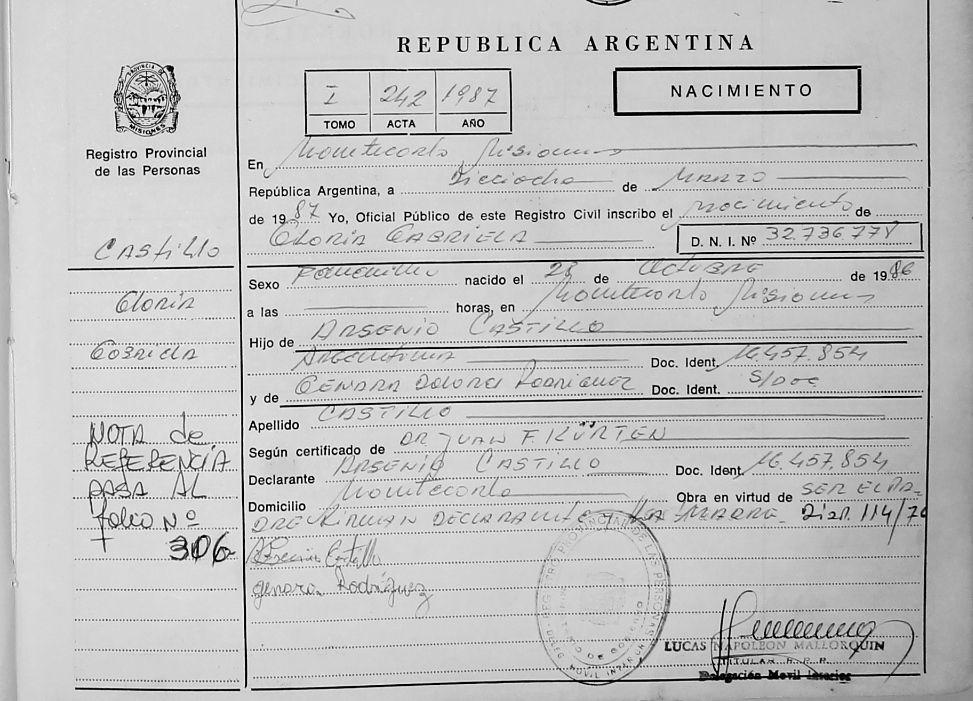 REPUBLICA ARGENTINA
I 242 1987
TOMO ACTA AÑO
NACIMIENTO
PROVINCIA DE MISIONES
Registro Provincial
de las Personas
CASTILLO
Gloria
Gabriela
NOTA de
REFERENCIA
PASA AL
folio Nº
306
En Montecarlo Misiones
República Argentina, a Dieciocho de Marzo
de 1987 Yo, Oficial Público de este Registro Civil inscribo el nacimiento de
GLORIA GABRIELA D. N. I. Nº 32.736.778
Sexo Femenino nacido el 28 de Octubre de 1986
a las horas, en Montecarlo Misiones
Hijo de ARSENIO CASTILLO
Argentina Doc. Ident. 16.457.854
y de GENARA Dolores Rodriguez Doc. Ident. S/Doc
Apellido CASTILLO
Según certificado de DR JUAN F. KÜRTEN
Declarante ARSENIO CASTILLO Doc. Ident. 16.457.854
Domicilio Montecarlo Obra en virtud de SER EL PA-
DRE FIRMAN DECLARANTE y LA MADRE. Disp. 114/76
Arsenio Castillo
Genara Rodriguez
LUCAS NAPOLEON MALLORQUIN
TITULAR R.P.P.
Delegación Movil Interior